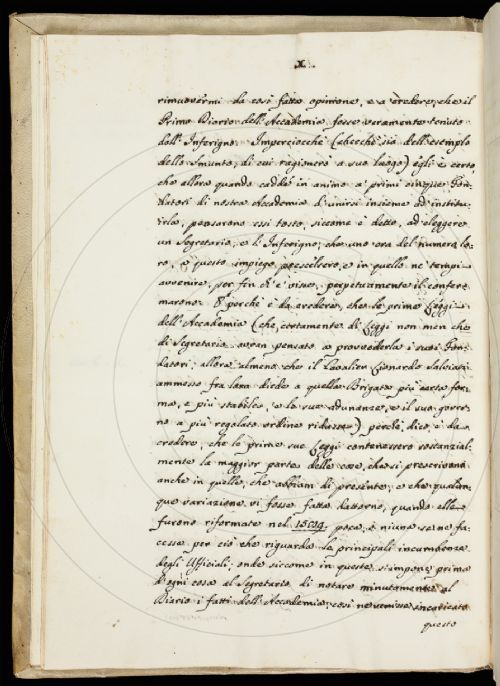 X.
rimuovermi da così fatta opinione, e a credere, che il
Primo Diario dell'Accademia fosse veramente tenuto
dall'Inferigno. Imperciocchè (checchè sia dell'esemplo
dello Smunto, di cui ragionerò a suo luogo) egli è certo,
che allora quando cadde in animo a' primi cinque Fon-
datori di nostra Accademia d'unirsi insieme ad institu-
irla, pensarono essi tosto, siccome è detto, ad eleggere
un Segretario, e l'Inferigno, che uno era del numero lo-
ro, a questo impiego prescelsero, e in quello ne' tempi
avvenire, per fin ch'e' visse, perpetuamente il confer-
marono. E perchè è da credere, che le prime Leggi
dell'Accademia (che certamente di Leggi non men che
di Segretario avean pensato a provvederla i suoi Fon-
datori; allora almeno che il Cavalier Lionardo Salviati
ammesso fra loro diede a quella Brigata più certa for-
ma, e più stabile, e le sue adunanze, e il suo gover-
no a più regolato ordine ridusse) perchè, dico, è da
credere, che le prime sue Leggi contenessero sostanzial-
mente la maggior parte delle cose, che si prescrivono
anche in quelle, che abbiam di presente; e che qualun-
que variazione vi fosse fatta dattorno, quando elle
furono riformate nel 1589, poca, o niuna se ne fa-
cesse per ciò che riguarda le principali incumbenze
degli Uffiziali; onde siccome in queste s'impone prima
d'ogni cosa al Segretario di notare minutamente al
Diario i fatti dell'Accademia; così ne venisse incaricato
questo